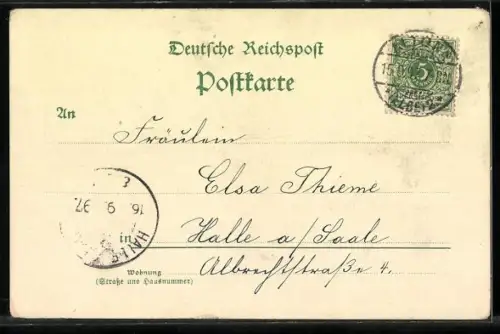 Deutsche Reichspost
Postkarte
An
Fräulein
Elsa Thieme
in Halle a/Saale
Albrechtstraße 4.
Wohnung
(Straße und Hausnummer)
5
16 9 97